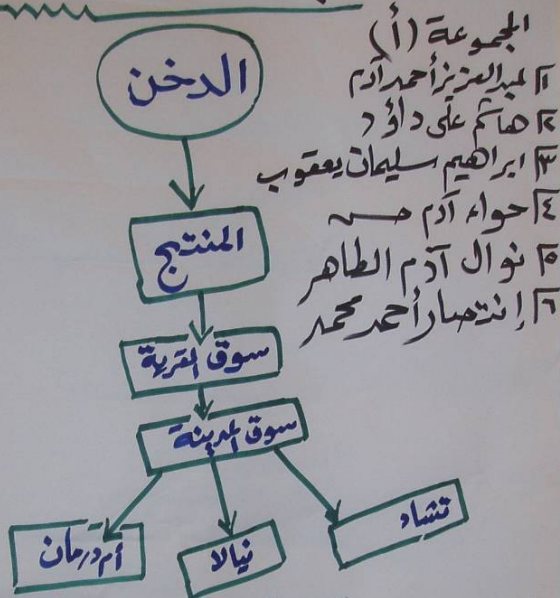 المجموعة (أ)
١ عبدالعزيز أحمد آدم
٢ هاشم على داؤد
٣ ابراهيم سليمان يعقوب
٤ حواء آدم حسن
٥ نوال آدم الطاهر
٦ إنتصار أحمد محمد
الدخن
المنتج
سوق القرية
سوق المدينة
أم درمان
نيالا
تشاد